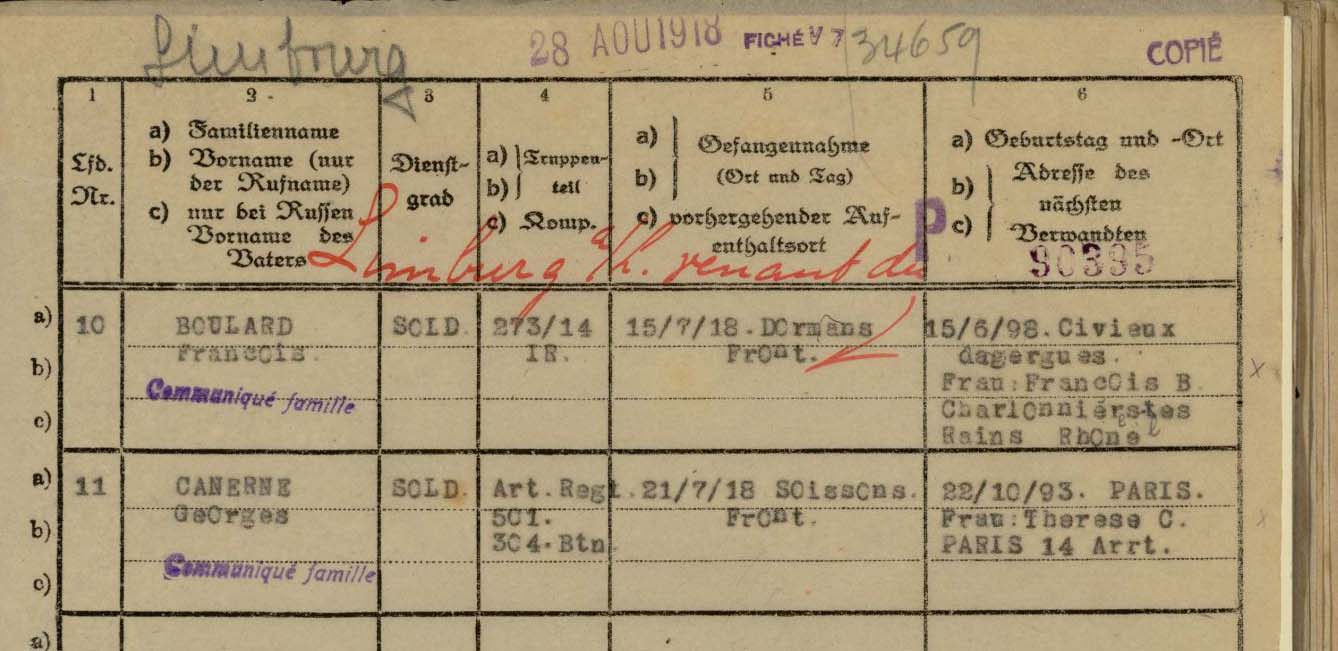 Limbourg 28 AOU 1918 FICHÉ V 7 34659 COPIÉ
1 2 3 4 5 6
Lfd. Nr.
a) Familienname
b) Vorname (nur
der Rufname)
c) nur bei Russen
Vorname des
Vaters
Dienst-
grad
a) Truppen-
b) teil
c) Komp.
a) Gefangennahme
b) (Ort und Tag)
c) vorhergehender Auf-
enthaltsort
P
a) Geburtstag und -Ort
b) Adresse des
nächsten
c) Verwandten
90395
Limburg a/h. venant du
a) 10 BOULARD SOLD. 273/14 15/7/18. Dormans 15/6/98. Civieux
Francois. IR. Front. dagergues.
b) Frau: Francois B.
Communiqué famille
c) Charlonniérstes
Rains Rhone
a) 11 CANERNE SOLD. Art. Regt. 21/7/18 Soissons. 22/10/93. PARIS.
b) Georges 501. Front. Frau: Therese C.
304. Btn. PARIS 14 Arrt.
Communiqué famille
c)
a)